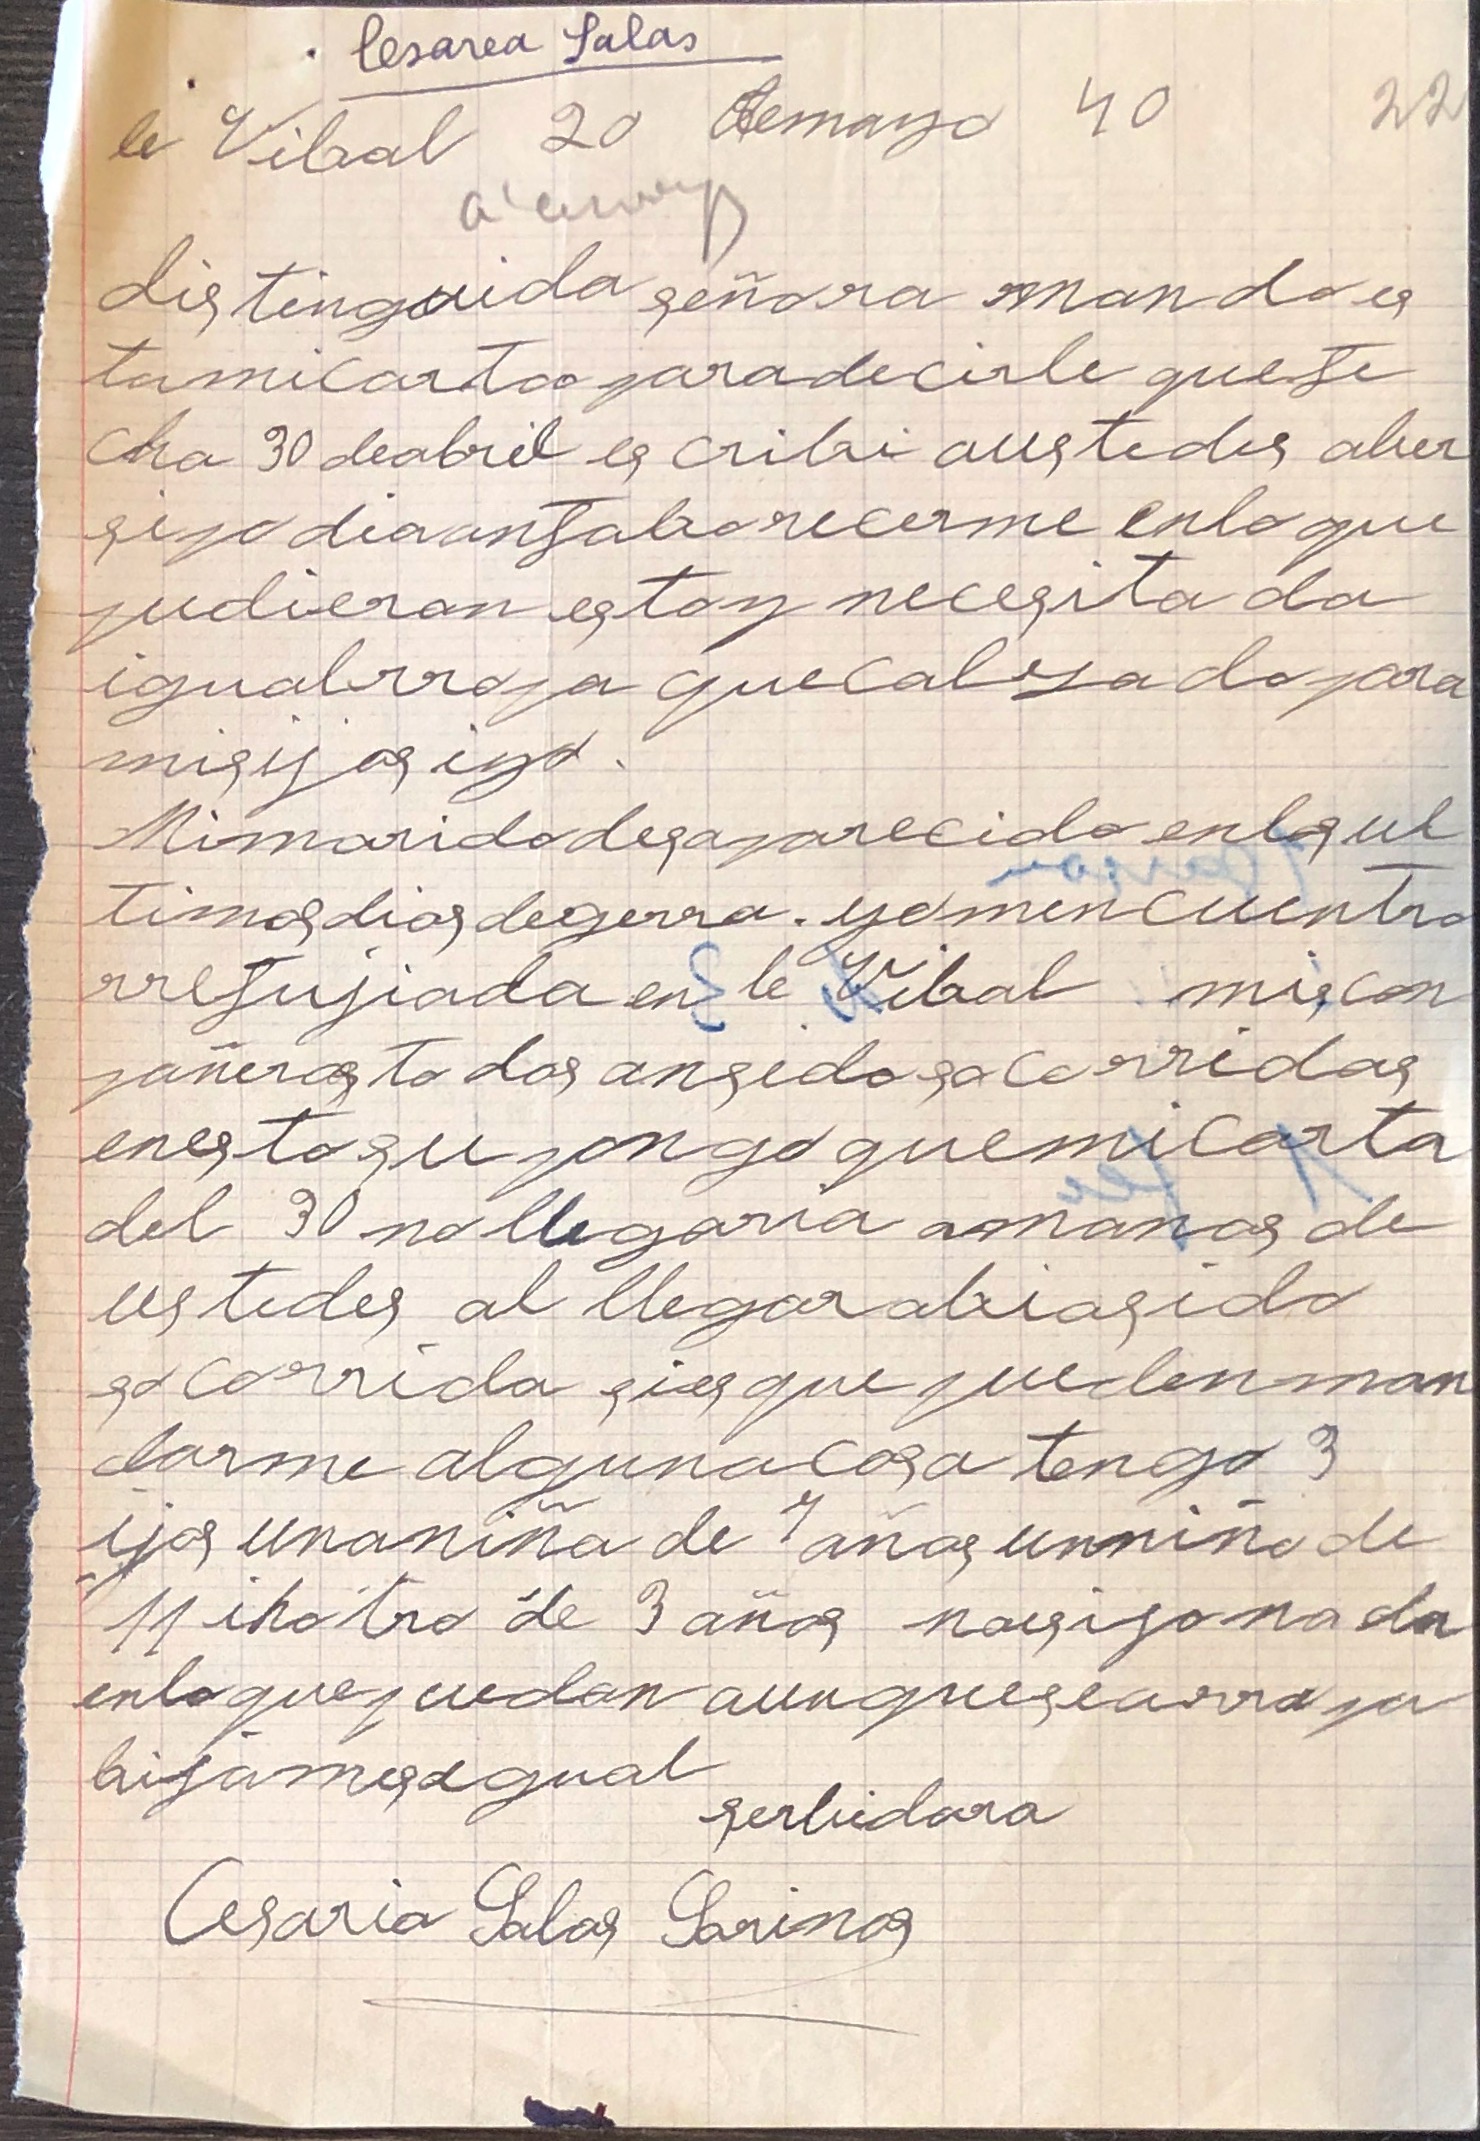 Cesarea Salas
le Vibal 20 demayo 40 22
distinguida señora mando es
tamicarta paradecirle quefe
cha 30 deabril escribi austedes aber
sipodianfaborecerme enlo que
pudieran estoy necesitada
igualrropa quecalzado para
misijosiyo.
Mimaridodesaparecido enlosul
timosdiasdegerra. yomencuentro
rrefujiada en le Vibal miscon
pañerastodas ansido socorridas
enestosupongo quemicarta
del 30 nollegaria amanos de
ustedes al llegarabiasido
socorrida sies que puedenman
darme algunacosa tengo 3
ijos unaniña de 7 años unniño de
11 ihotro de 3 años nosesijonada
enloquepuedan aunquesearropa
bijamesigual
serbidora
Cesaria Salas Sarinos